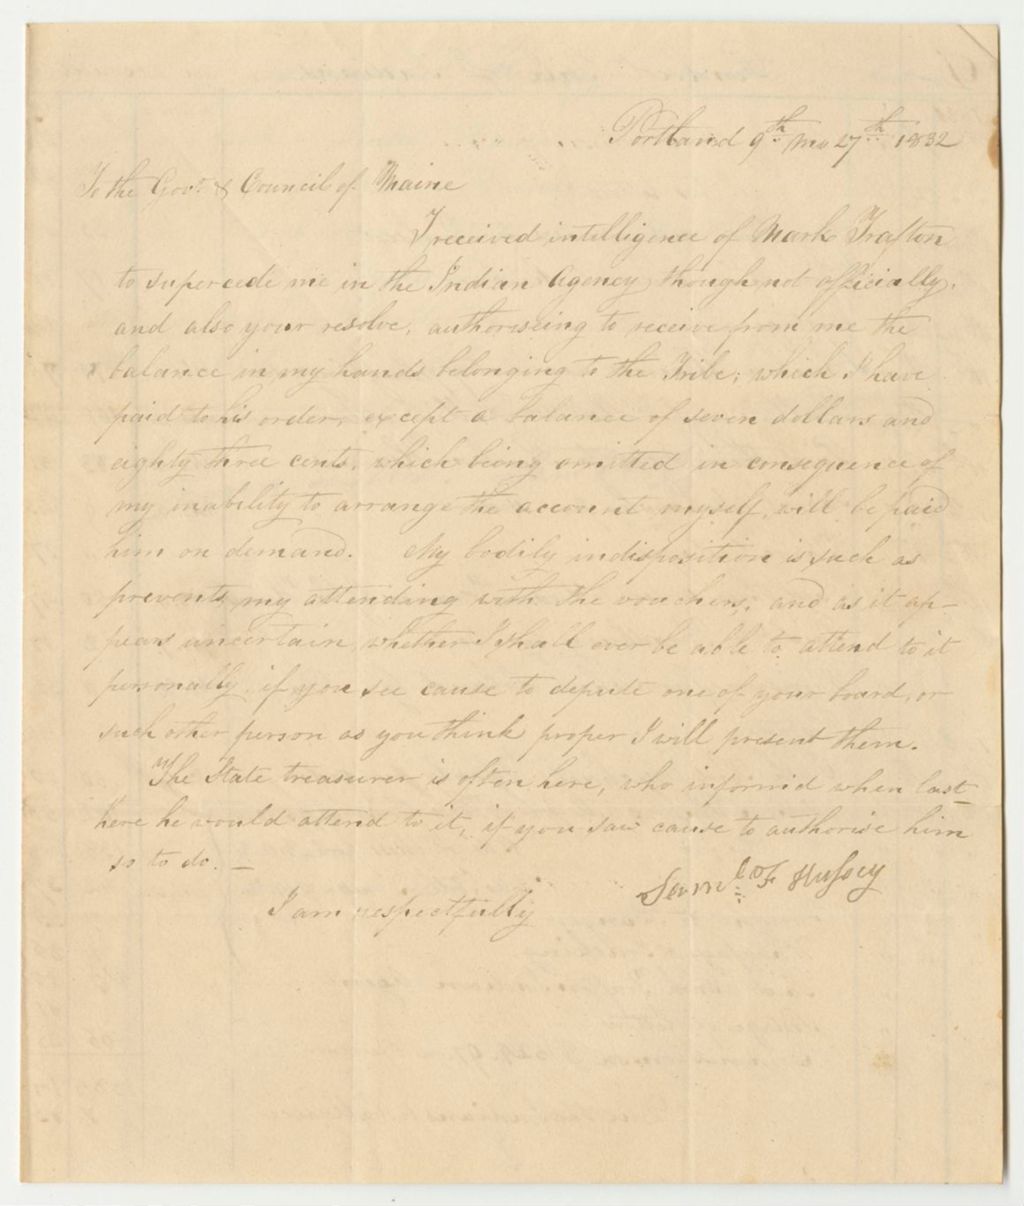 Portland 9th mo 27th 1832
To the Govr. & Council of Maine
I received intelligence of Mark Trafton
to supercede me in the Indian Agency, though not officially,
and also your resolve, authoriseing to receive from me the
balance in my hands belonging to the Tribe; which I have
paid to his order, except a balance of seven dollars and
eighty three cents, which being omitted in consequence of
my inability to arrange the account myself, will be paid
him on demand. My bodily indisposition is such as
prevents my attending with the vouchers; and as it ap-
pears uncertain whether I shall ever be able to attend to it
personally, if you see cause to depute one of your board, or
such other person as you think proper I will present them.
The State treasurer is often here, who informid when last
here he would attend to it, if you saw cause to authorise him
so to do. —
Saml F Hussey
I am respectfully